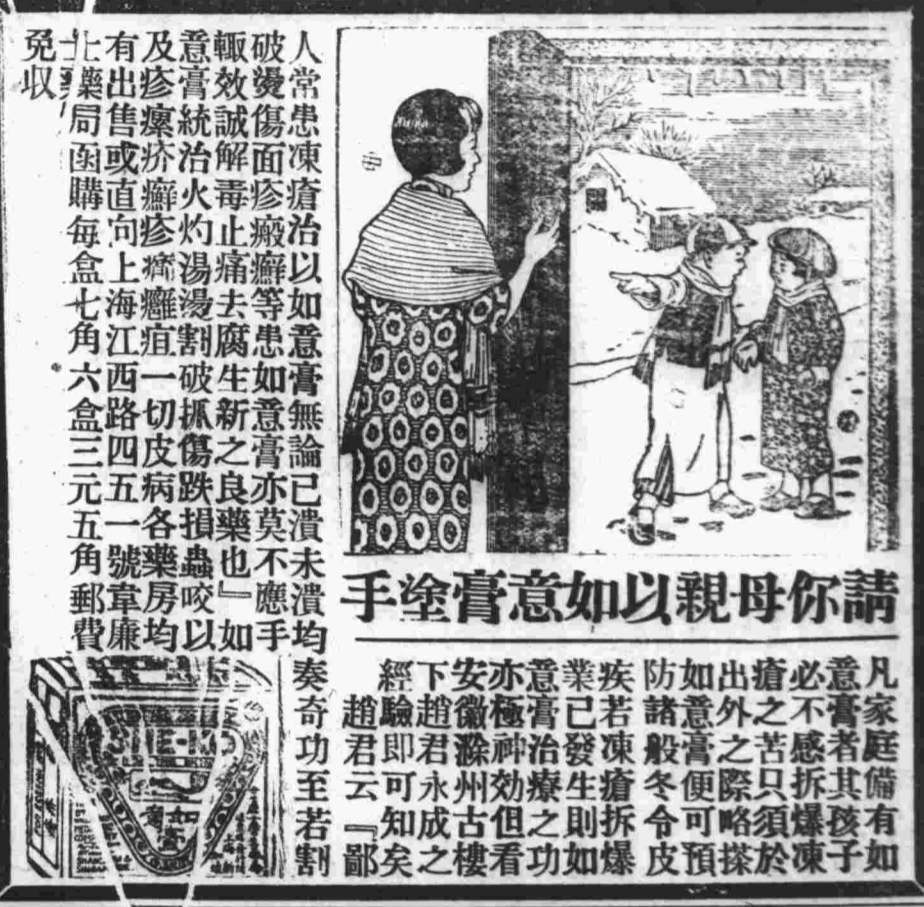 請你母親以如意膏塗手
凡家庭備有如
意膏者其孩子
必不感拆爆凍
瘡之苦只須於
出外之際略搽
如意膏便可預
防諸般冬令皮
疾若凍瘡拆爆
業已發生則如
意膏治療之功
亦極神効但看
安徽滁州古樓
下趙君永成之
經驗即可知矣
趙君云『鄙
人常患凍瘡治以如意膏無論已潰未潰均奏奇功至若割
破燙傷面疹瘢癬等患如意膏亦莫不應手
輙效誠解毒止痛去腐生新之良藥也』如
意膏統治火灼湯燙割破抓傷跌損蟲咬以
及疹瘰疥癬疹癰疽一切皮病各藥房均
有出售或直向上海江西路四五一號韋廉
士藥局函購每盒七角六盒三元五角郵費
免収
如意膏